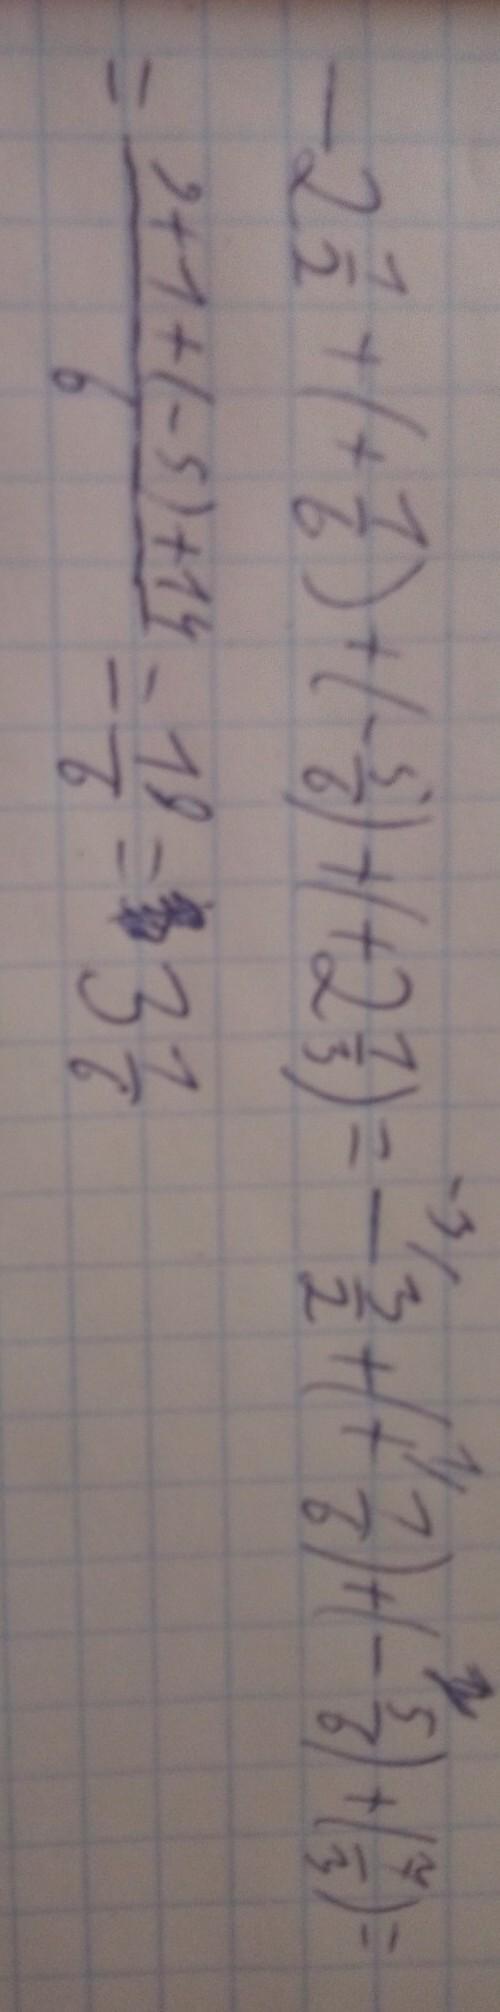 -2 1/2 + (+ 1/6) + (- 5/6) + (+ 2 1/3) = -3/ - 3/2 + (+ 1/ 1/6) + (- 5/6) + (7/3) =
= 9+1+(-5)+14 / 6 = 19/6 = 3 1/6